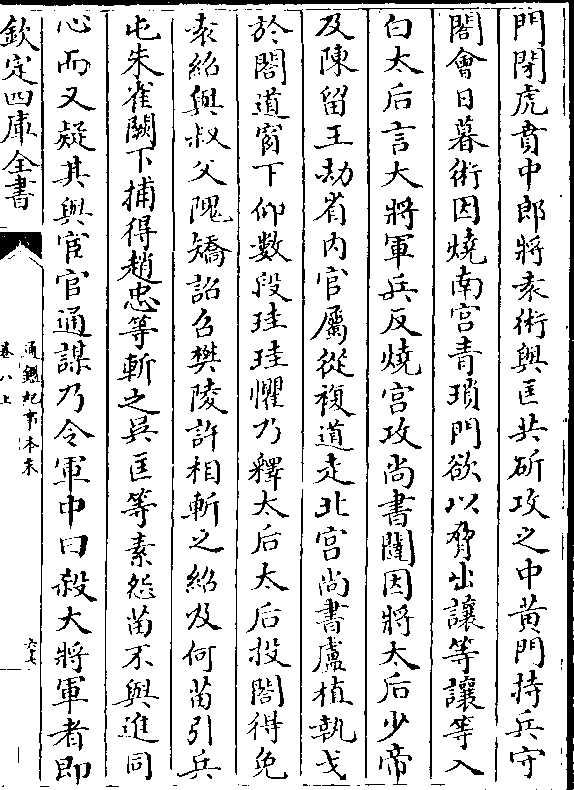 門閉虎賁中郎將袁術與匡共斫攻之中黄門持兵守
閤會日暮術因燒南宫青瑣門欲以脅出讓等讓等入
白太后言大將軍兵反燒宫攻尚書闥因將太后少帝
及陳留王劫省内官屬從複道走北宫尚書盧植執戈
於閣道窗下仰數段珪珪懼乃釋太后太后投閣得免
袁紹與叔父隗矯詔召樊陵許相斬之紹及何苗引兵
屯朱雀闕下捕得趙忠等斬之吳匡等素怨苗不與進同
心而又疑其與宦官通謀乃令軍中曰殺大將軍者即
欽定四庫全書
通鑑紀事本末
卷八上
六十七